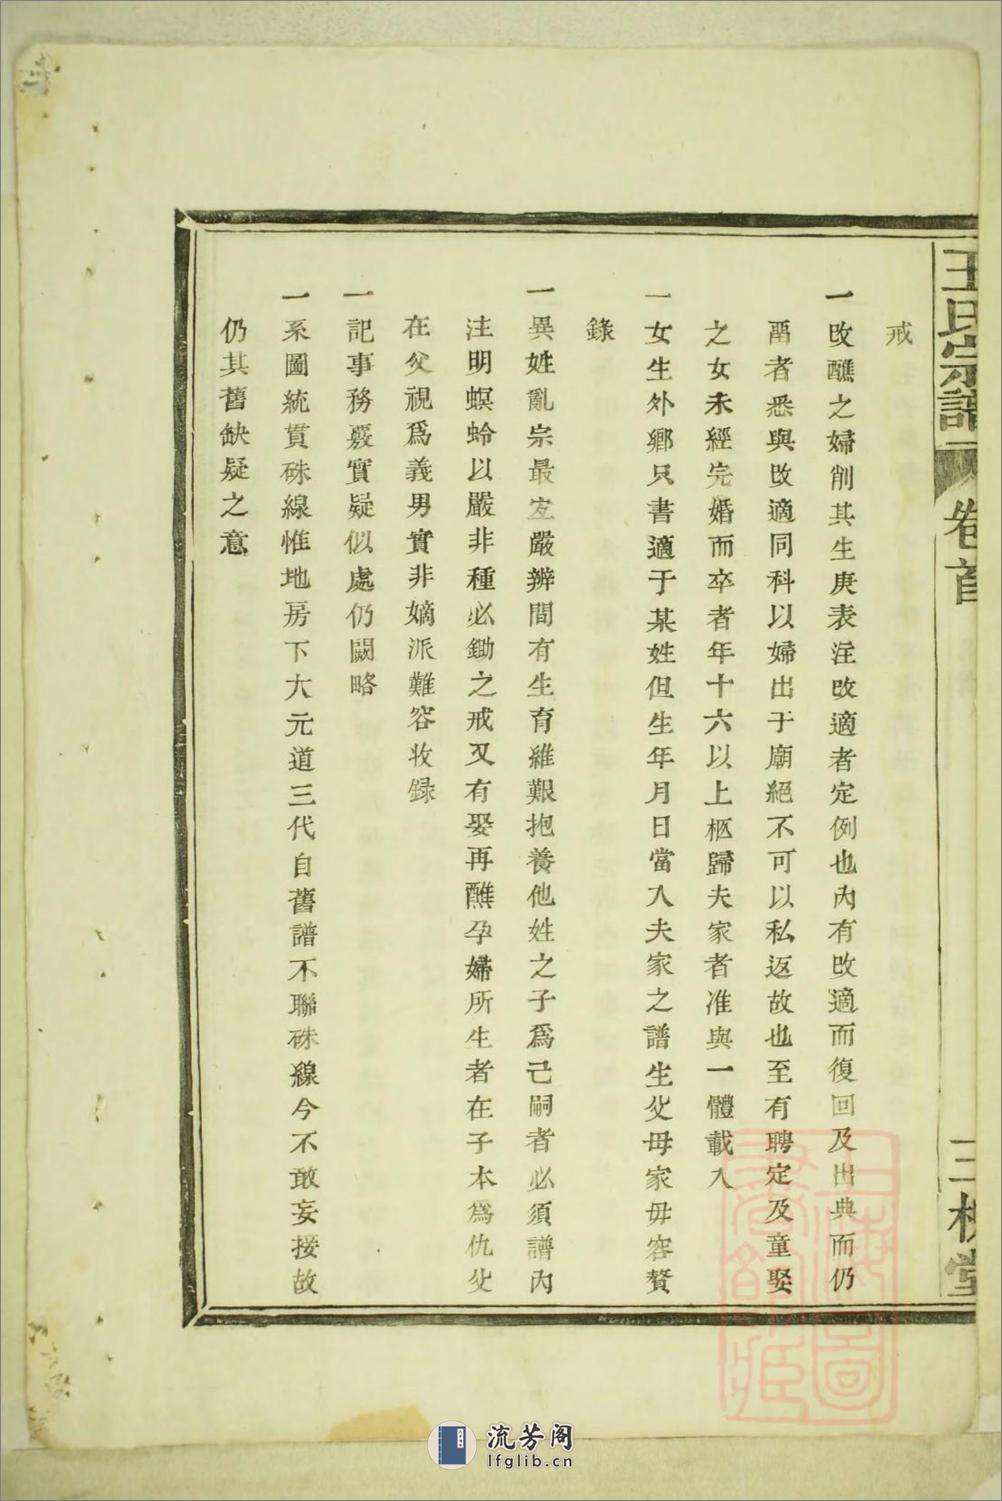 王氏宗譜
卷首
三槐堂
戒
一改醮之婦削其生庚表注改適者定例也內有改適而復回及出典而仍
者悉與改適同科以婦出于廟絕不可以私返故也至有聘定及童娶
之女未經完婚而卒者年十六以上柩歸夫家者准與一體載入
一女生外鄉只書適于某姓但生年月日當入夫家之譜生父母家毋容贅
錄
一異姓亂宗最宜嚴辨間有生育維艱抱養他姓之子爲己嗣者必須譜內
注明螟蛉以嚴非種必鋤之戒又有娶再醮孕婦所生者在子本爲仇父
在父視爲義男實非嫡派難容收録
一記事務覈實疑似處仍闕略
一系圖統貫硃線惟地房下大元道三代自舊譜不聯硃線今不敢妄接故
仍其舊缺疑之意
上海圖書館藏
流芳阁
lfglib.cn